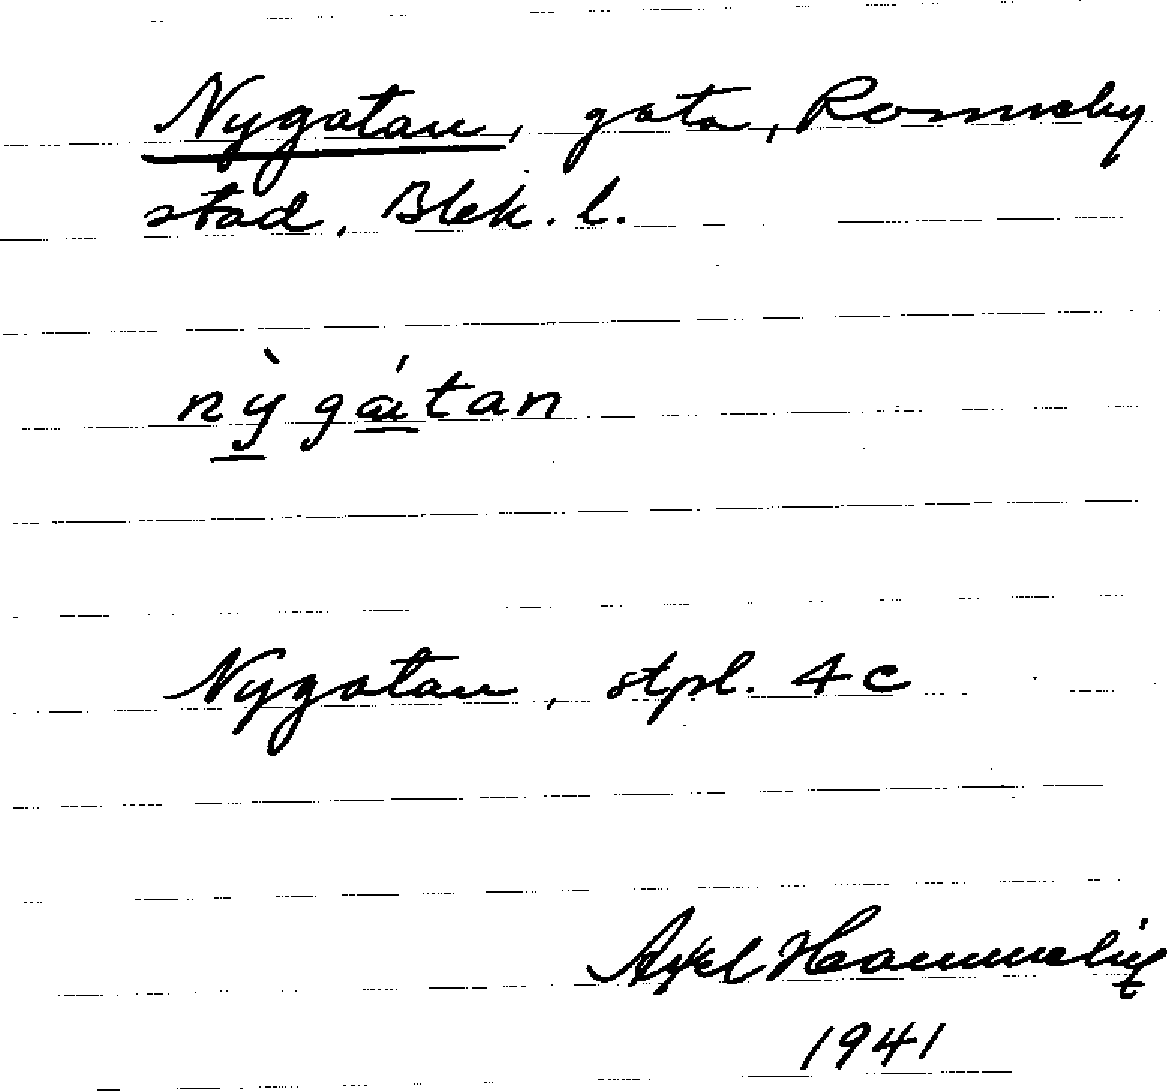 Nygatan, gata, Ronneby
stad, Blek. l.
nỳgátan
Nygatan, stpl. 4c
Axel
1941